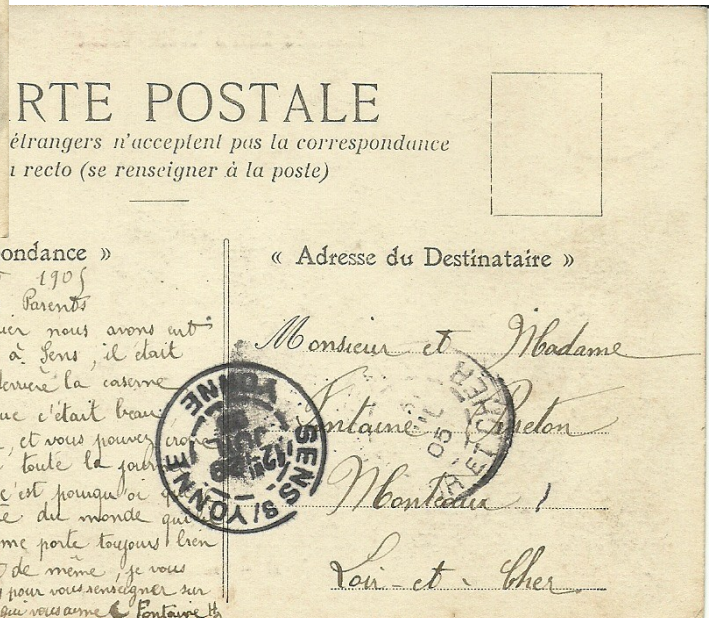 RTE POSTALE
étrangers n'acceptent pas la correspondance
recto (se renseigner à la poste)
ondance »
1905
Parents
ier nous avons eut
à Sens, il était
derrière la caserne
ue c'était beau
, et vous pouvez croire
toute la
c'est pourquoi
du monde qui
me porte toujours bien
de même, je vous
pour vous renseigner sur
qui vous aime Fontaine
« Adresse du Destinataire »
Monsieur et Madame
Fontaine
Monteaux
Loir-et-Cher
SENS S/YONNE
YONNE
12
05
ET CHER